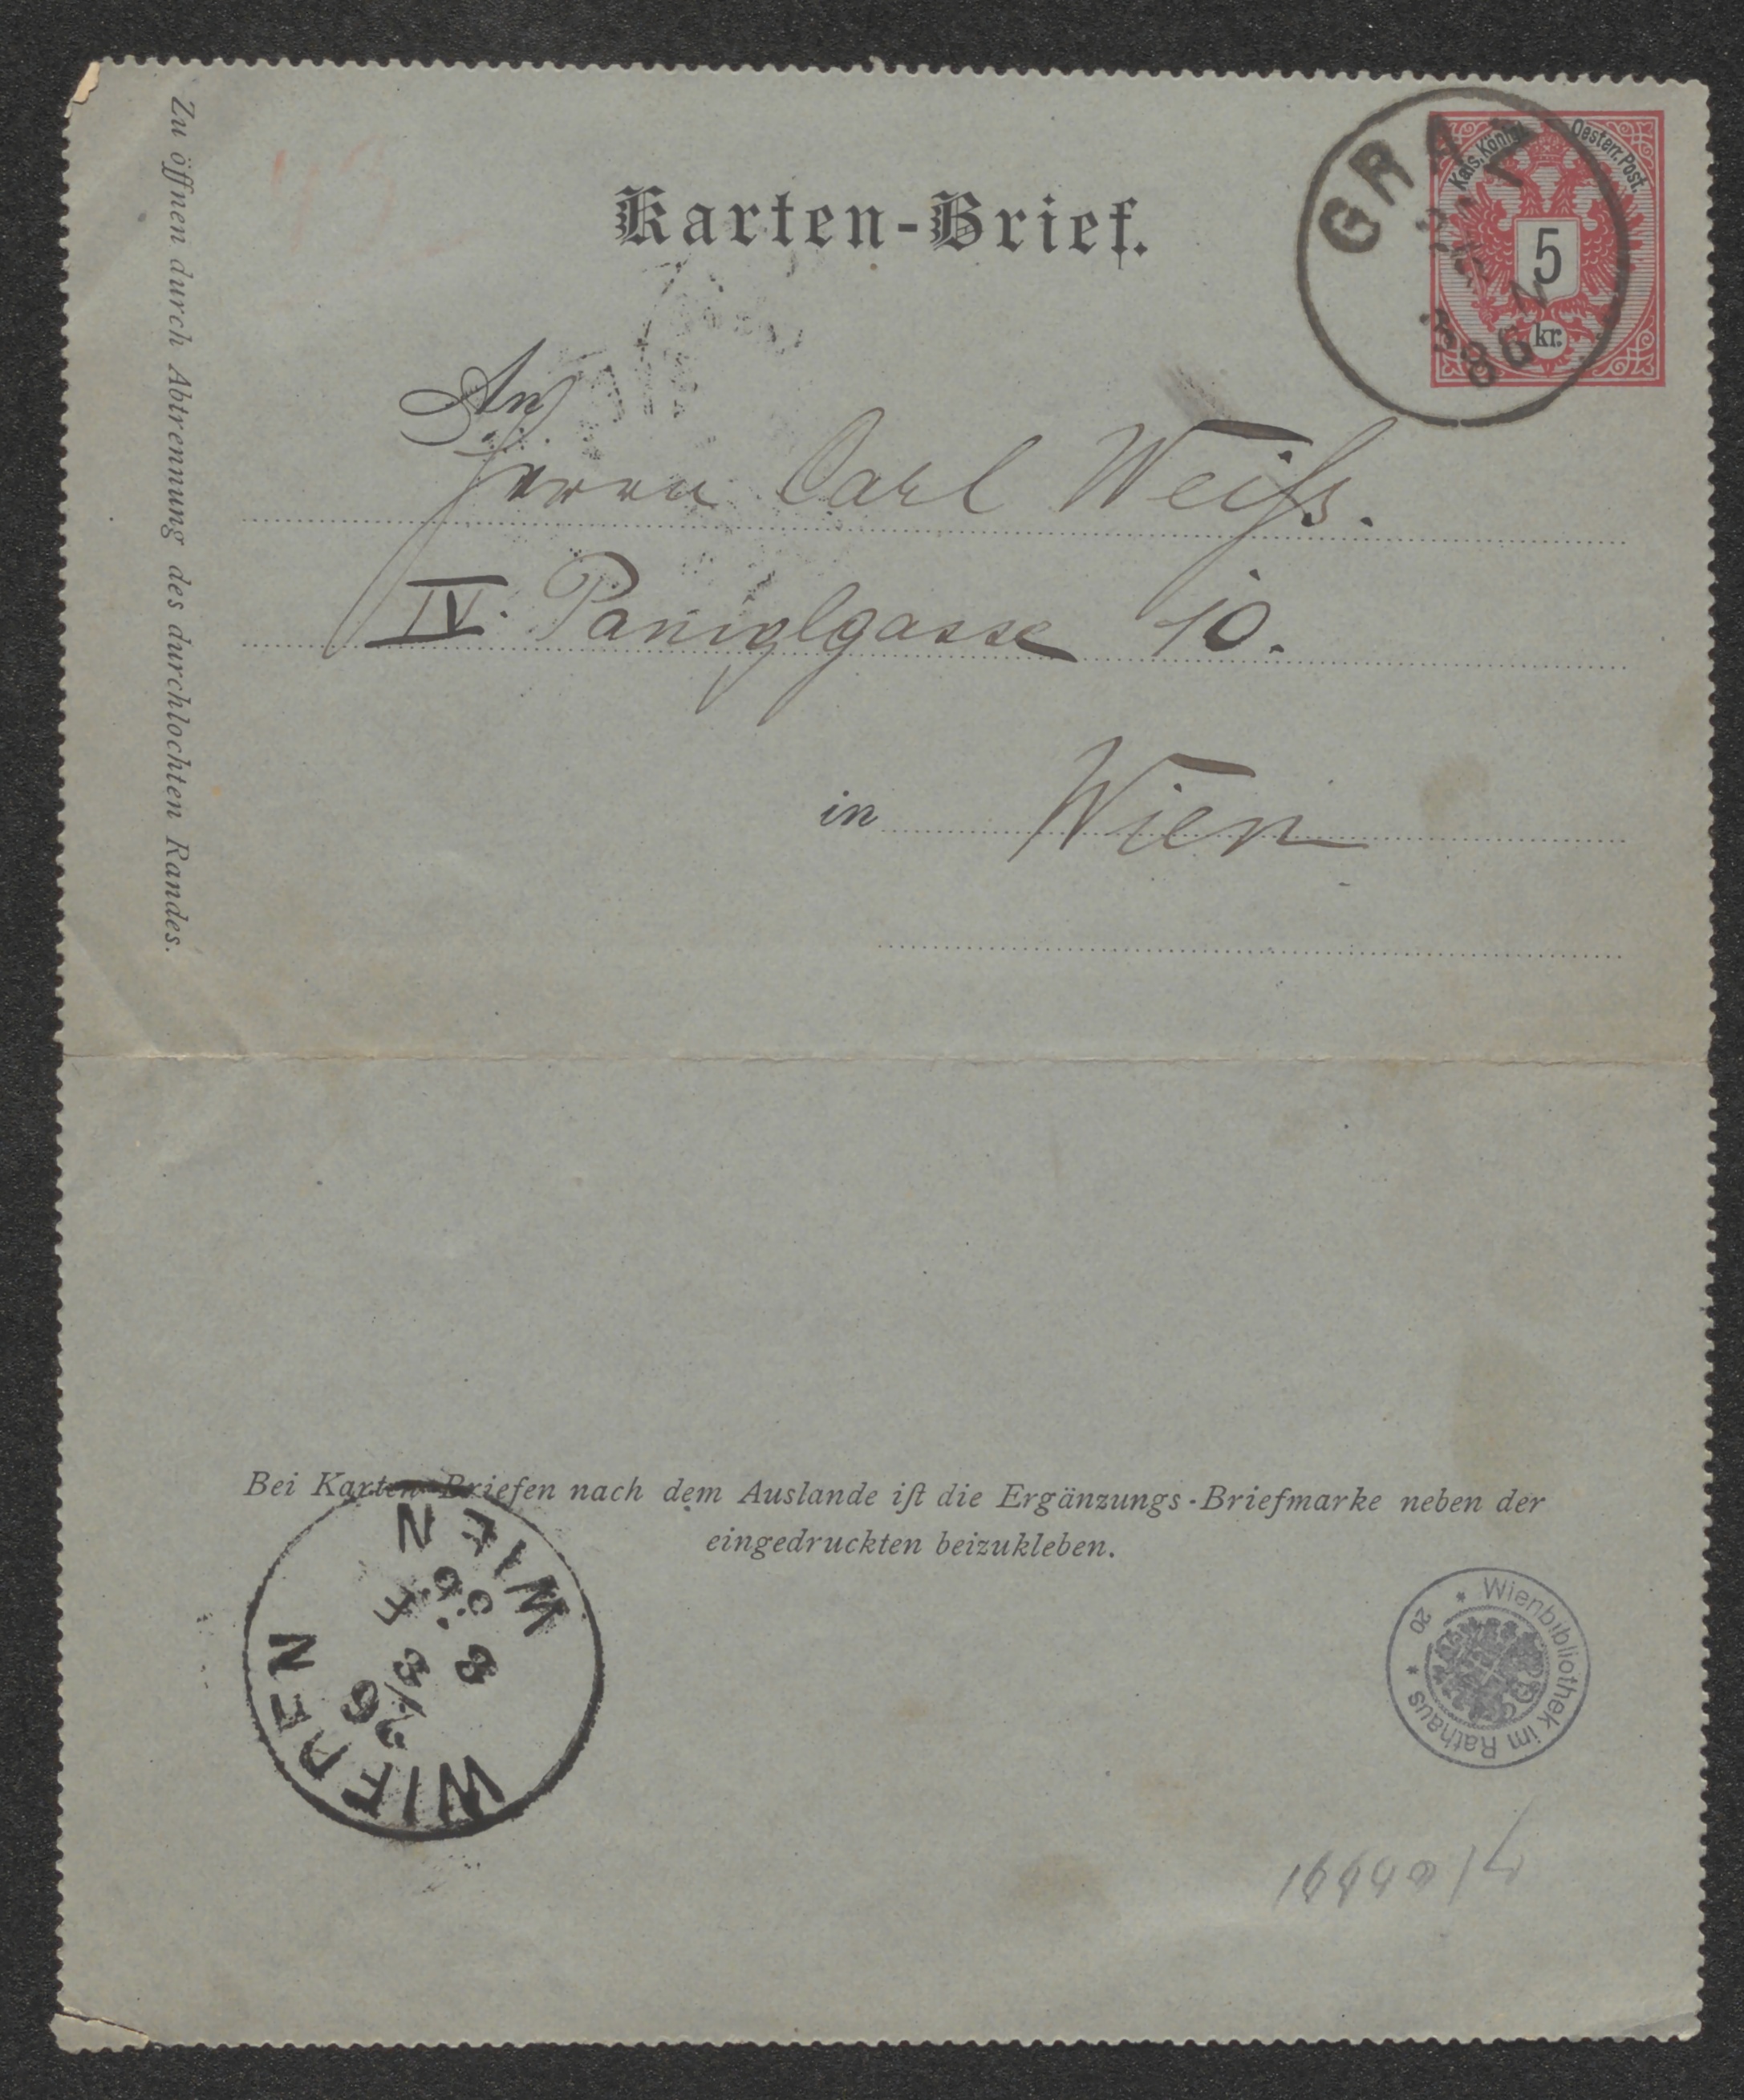 Zu öffnen durch Abtrennung des durchlochten Randes.
Karten-Brief.
Kais. Königl. Oesterr. Post.
5
kr.
GRAZ
86
An
Herrn Carl Weiſs.
IV. Paniglgasse 10.
in Wien
Bei Karten-Briefen nach dem Auslande iſt die Ergänzungs-Briefmarke neben der
eingedruckten beizukleben.
WIEN
WIEDEN
Wienbibliothek im Rathaus
20